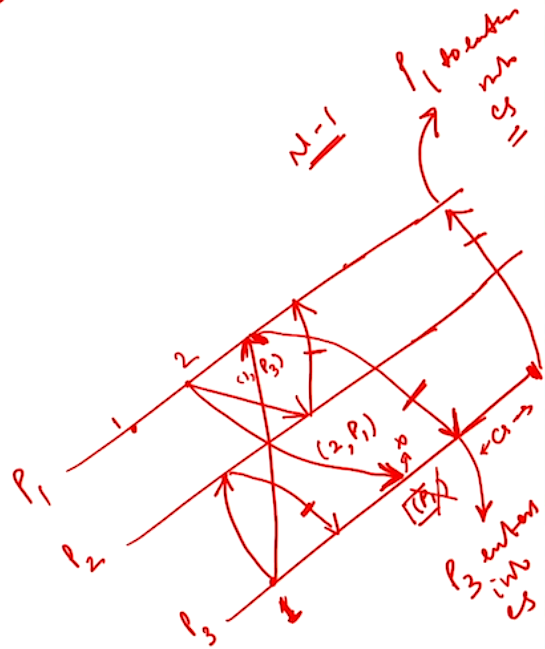 P1 to enter
into
CS
N-1
2
1
(1, P3)
(2, P1)
P1
← CS →
(P1)
P2
P3
1
P3 enters
into
CS